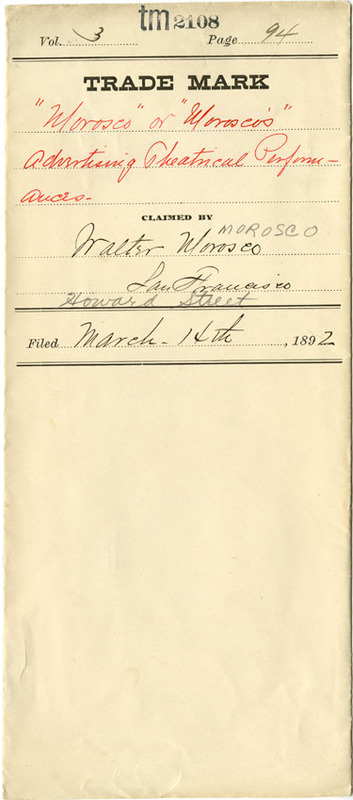 tm 2108
Vol. 3 Page 94
TRADE MARK
"Morosco" or "Morosco's"
Advertising Theatrical Perform-
ances.
CLAIMED BY
MOROSCO
Walter Morosco
San Francisco
Howard Street
Filed March - 14th, 1892